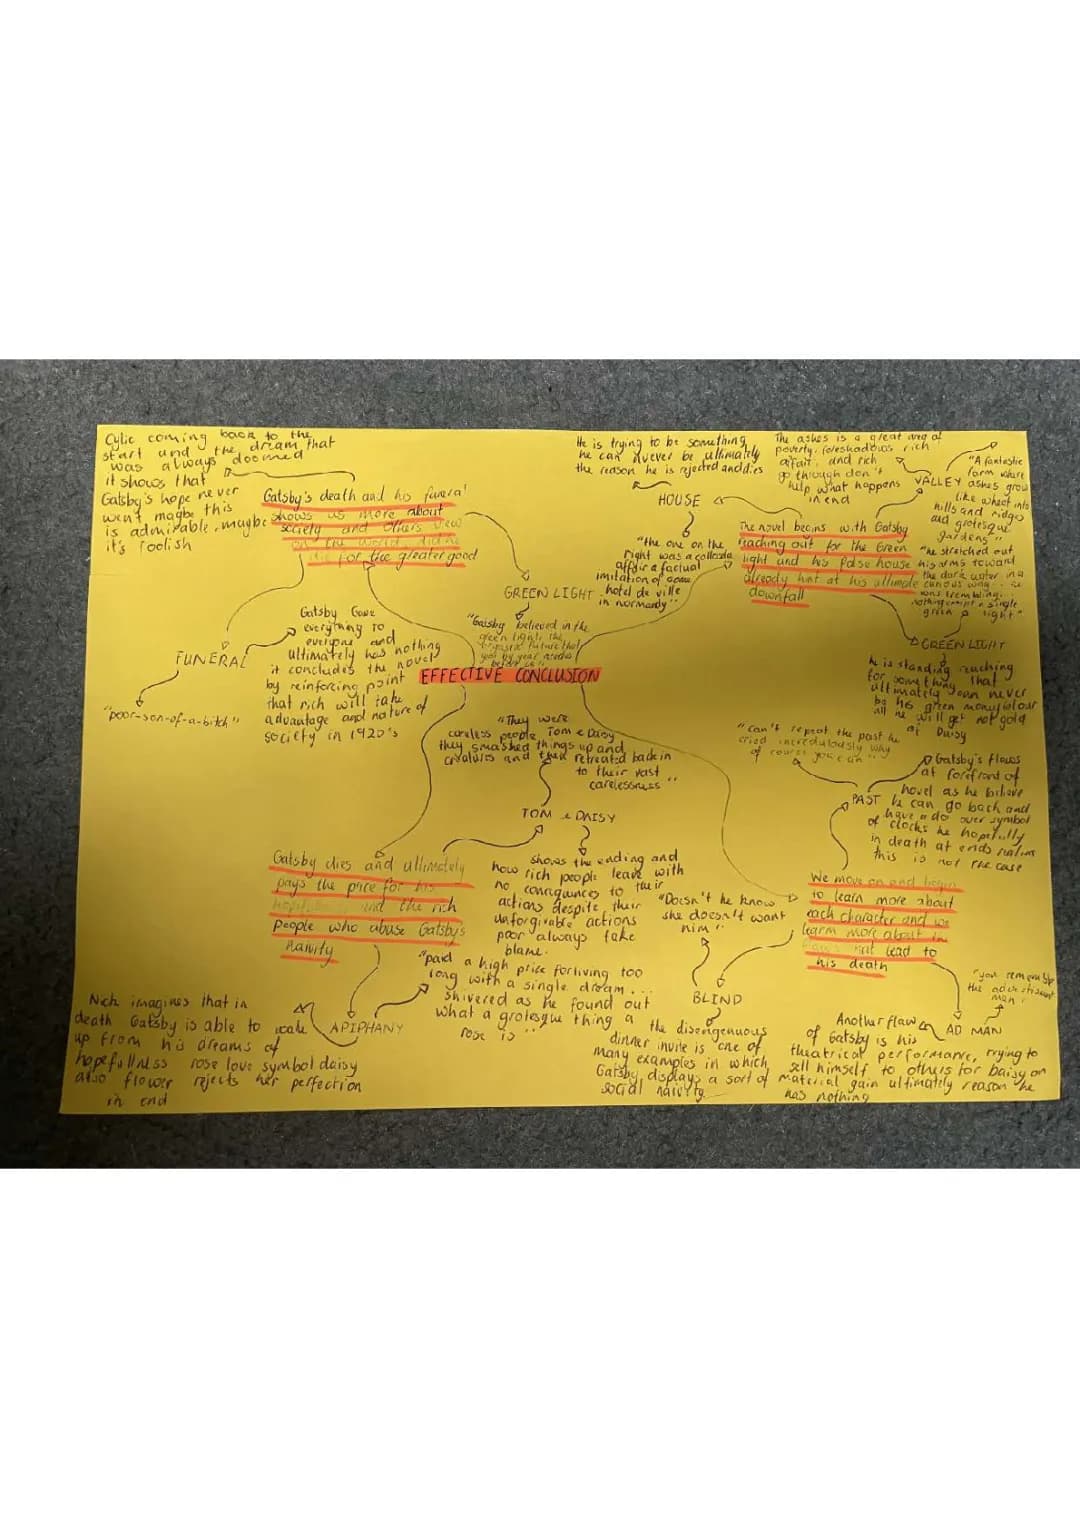 Cylic coming back to the
start and the dream that
was always doomed
it shows that
Gatsby's hope never
went magbe this
is admirable, maybe
it's foolish
Gatsby's death and his funeral
shows us more about
society and others view
on the world did he
die for the greater good
FUNERAL
"poor-son-of-a-bitch"
Gatsby Gave
everything to
everyone and
ultimately has nothing
it concludes the novel
by reinforcing point
that rich will take
advantage and nature of
society in 1920's
GREEN LIGHT
"Gatsby believed in the
green light, the
future that
year by year
EFFECTIVE CONCLUSION
He is trying to be something
he can never be ultimately
the reason he is rejected and dies
HOUSE
"the one on the
right was a collosal
affair a factual
imitation of some
hotel de ville
in normandy"
The novel begins with Gatsby
reaching out for the Green
light and his false house
already hint at his ultimate
downfall
The ashes is a great area of
poverty. foreshadows rich
affair, and rich
go through don't
help what happens
in end
VALLEY
"A fantastic
farm where
ashes grow
like wheat into
hills and ridges
and grotesque
gardens"
"he stretched out
his arms toward
the dark water in a
curious way... he
was trembling...
nothing except a single
green light"
GREEN LIGHT
he is standing reaching
for something that
ultimately can never
be his green money colour
all he will get not gold
or Daisy
"can't repeat the past he
cried incredulously why
of course you can"
PAST
Gatsby's flaws
at forefront of
novel as he believe
he can go back and
have a do over symbol
of clocks he hopefully
in death at ends
this is not the case
We move on and begin
to learn more about
each character and we
learn more about
flaws that lead to
his death
AD MAN
"you remember
the advertisment
man"
Another flaw
of Gatsby is his
theatrical performance, trying to
sell himself to others for Daisy on
material gain ultimately reason he
has nothing
BLIND
"Doesn't he know
she doesn't want
him"
the disengenuous
dinner invite is one of
many examples in which
Gatsby displays a sort of
social naivity
"They were
careless people Tom & Daisy
they smashed things up and
creatures and then retreated back in
to their vast
carelessness"
TOM & DAISY
shows the ending and
how rich people leave with
no conseqences to their
actions despite their
unforgivable actions
poor always take
blame.
Gatsby dies and ultimately
pays the price for his
and the rich
people who abuse Gatsby's
naivity
APIPHANY
"paid a high price for living too
long with a single dream...
shivered as he found out
what a grotesque thing a
rose is"
Nick imagines that in
death Gatsby is able to wake
up from his dreams of
hopefullness rose love symbol daisy
also flower rejects her perfection
in end